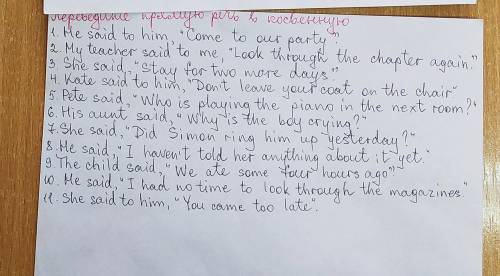 Переведите прямую речь в косвенную
1. He said to him, "Come to our party."
2. My teacher said to me, "Look through the chapter again."
3. She said, "Stay for two more days."
4. Kate said to him, "Don't leave your coat on the chair"
5. Pete said, "Who is playing the piano in the next room?"
6. His aunt said, "Why is the boy crying?"
7. She said, "Did Simon ring him up yesterday?"
8. He said, "I haven't told her anything about it yet."
9. The child said, "We ate some four hours ago"
10. He said, "I had no time to look through the magazines."
11. She said to him, "You came too late".